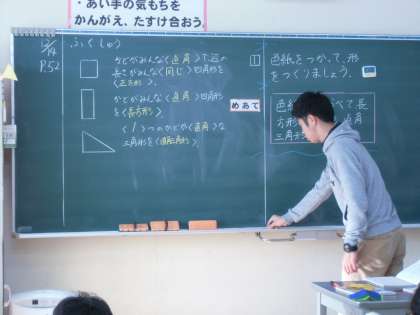 ・あい手の気もちを
かんがえ、たすけ合おう。
P.52
ふくしゅう
かどがみんな〈直角〉で、辺の
長さがみんな〈同じ〉四角形を
〈正方形〉。
かどがみんな〈直角〉四角形
を〈長方形〉。
〈1〉つのかどが〈直角〉な
三角形を〈直角三角形〉。
1
色紙をつかって、形
をつくりましょう。
めあて
色紙
べて長
方形
角
三角形